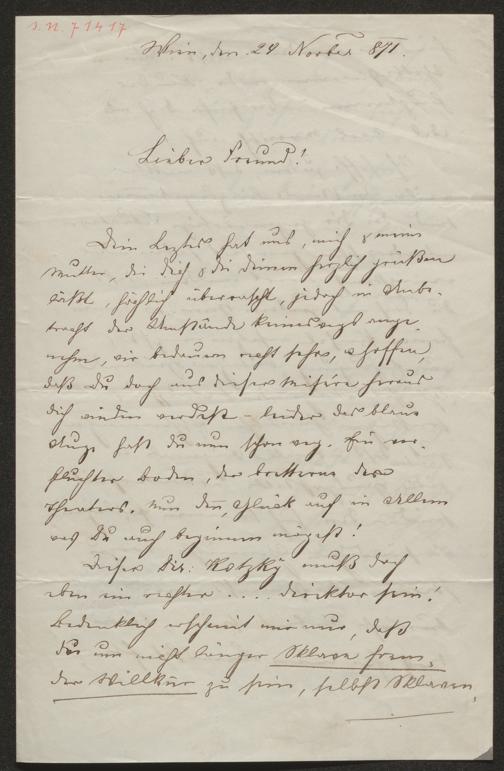 J. N. 71417
Wien, den 24 Novber 871.
Lieber Freund!
Dein Leztes hat uns, mich & meine
Mutter, die dich & die deinen herzlich grüßen
läßt, höchlich überrascht, jedoch in Anbe-
tracht der Umstände keineswegs ange-
nehm, wir bedauern recht sehr, & hoffen,
daß du doch aus dieser Misére heraus
dich winden werdest – leider das blaue
Auge hast du nun schon weg. Ein ver-
fluchter Boden, der bretterne des
Theaters. Nun denn, Glück auf in Allem
was Du auch beginnen mögest!
Dieser Dir: Kotzky muß doch
eben ein rechter .... direktor sein!
Bedenklich erscheint mir nur, daß
Du um nicht länger Sklave frem-
der Willkür zu sein, selbst Sklaven